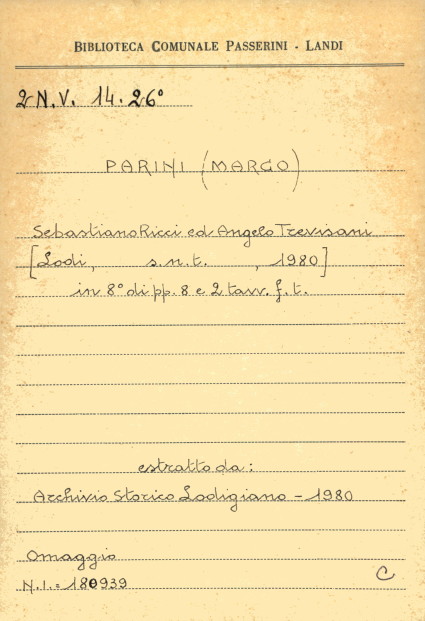 BIBLIOTECA COMUNALE PASSERINI - LANDI
2 N.V. 14.26°
PARINI (MARGO)
Sebastiano Ricci ed Angelo Trevisani
[Lodi, s.n.t., 1980]
in 8° di pp. 8 e 2 tavv. f.t.
estratto da:
Archivio Storico Lodigiano - 1980
Omaggio
N.I. = 180939
C